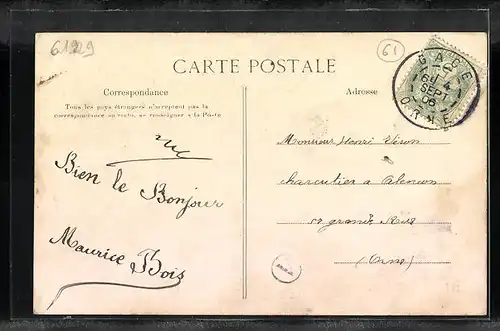 61229
61
CARTE POSTALE
GACÉ
6 4
SEPT
06
ORNE
Correspondance
Adresse
Tous les pays étrangers n'acceptent pas la
correspondance au verso, se renseigner à la Poste
Bien le Bonjour
Maurice Bois
Monsieur Henri Véron
charcutier a Alencon
grande Rue
(Orne)